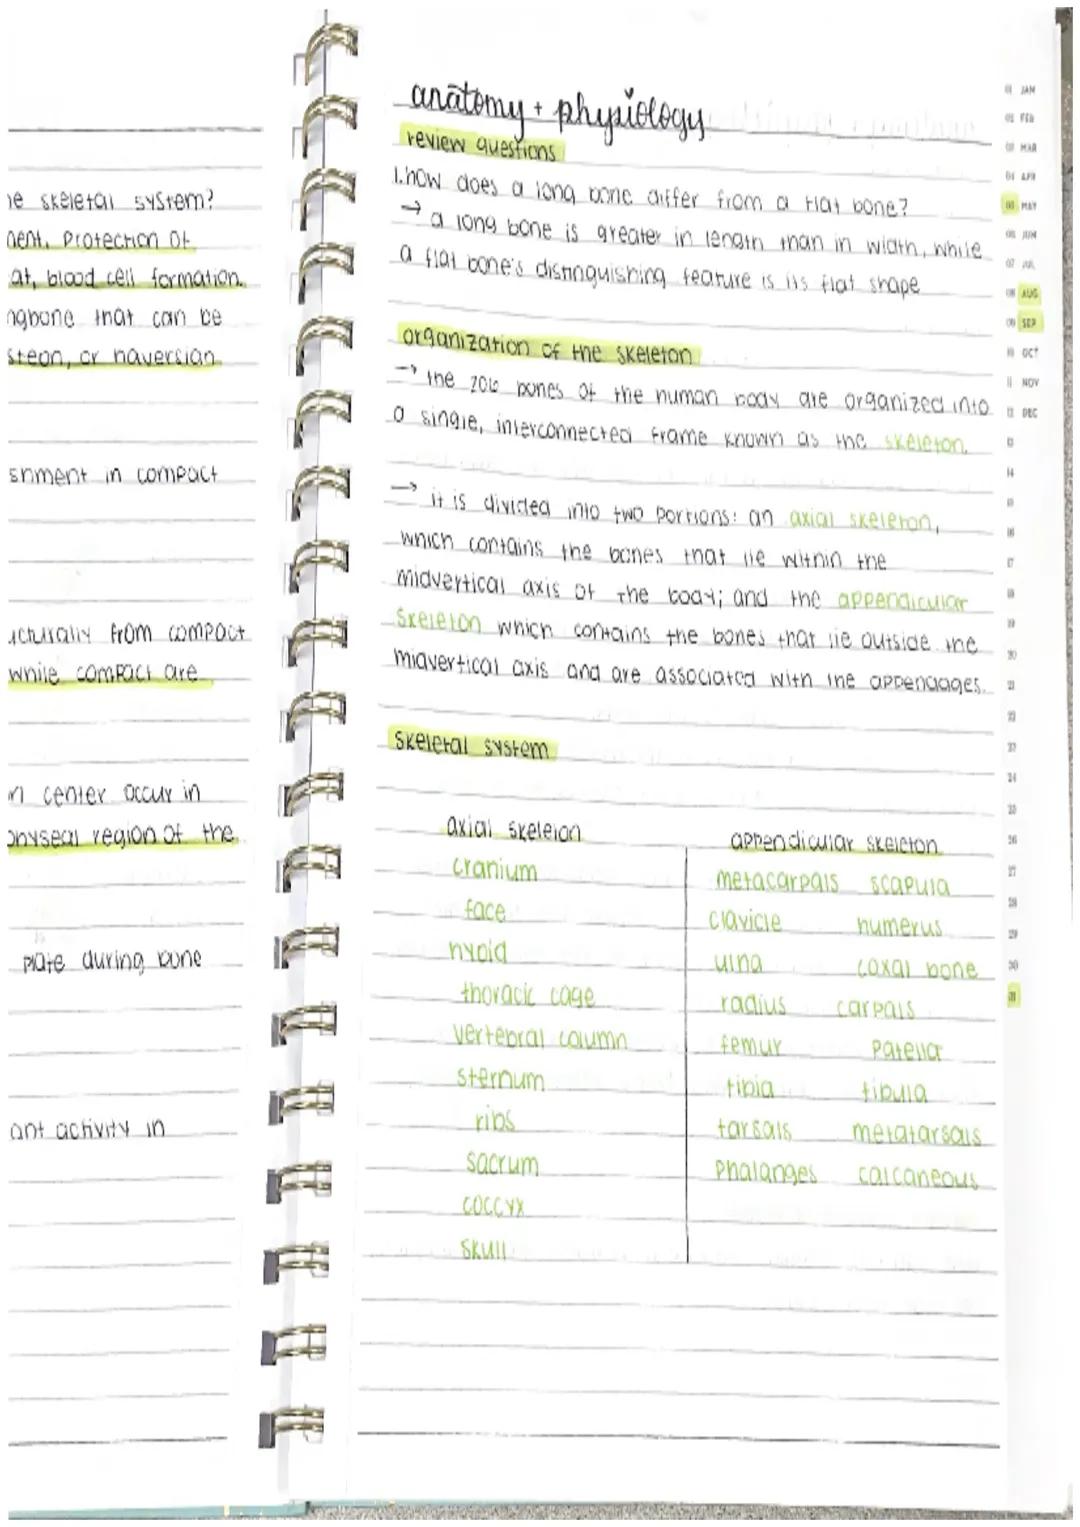 skeletal system?
Protection of
at, blood cell formation.
that can be
steon, or haversian
shment in compact
ucturally from compact
while compact are
center occur in
physeal region of the
plate during bone
ant activity in
anatomy + physiology
review questions
1. how does a long bone differ from a flat bone?
→ a long bone is greater in length than in width, while
a flat bone's distinguishing feature is its flat shape
organization of the skeleton
→ the 206 bones of the human body are organized into
a single, interconnected frame known as the skeleton.
→ it is divided into two portions: an axial skeleton,
which contains the bones that lie within the
midvertical axis of the body; and the appendicular
skeleton which contains the bones that lie outside the
midvertical axis and are associated with the appendages.
skeletal system
axial skeleton
cranium
face
hyoid
thoracic cage
vertebral column
sternum
ribs
sacrum
coccyx
skull
appendicular skeleton
metacarpals scapula
clavicle humerus
ulna coxal bone
radius carpals
femur patella
tibia fibula
tarsals metatarsals
phalanges calcaneous
01 JAN
02 FEB
03 MAR
04 APR
05 MAY
06 JUN
07 JUL
08 AUG
09 SEP
10 OCT
11 NOV
12 DEC
13
14
15
16
17
18
19
20
21
22
23
24
25
26
27
28
29
30
31